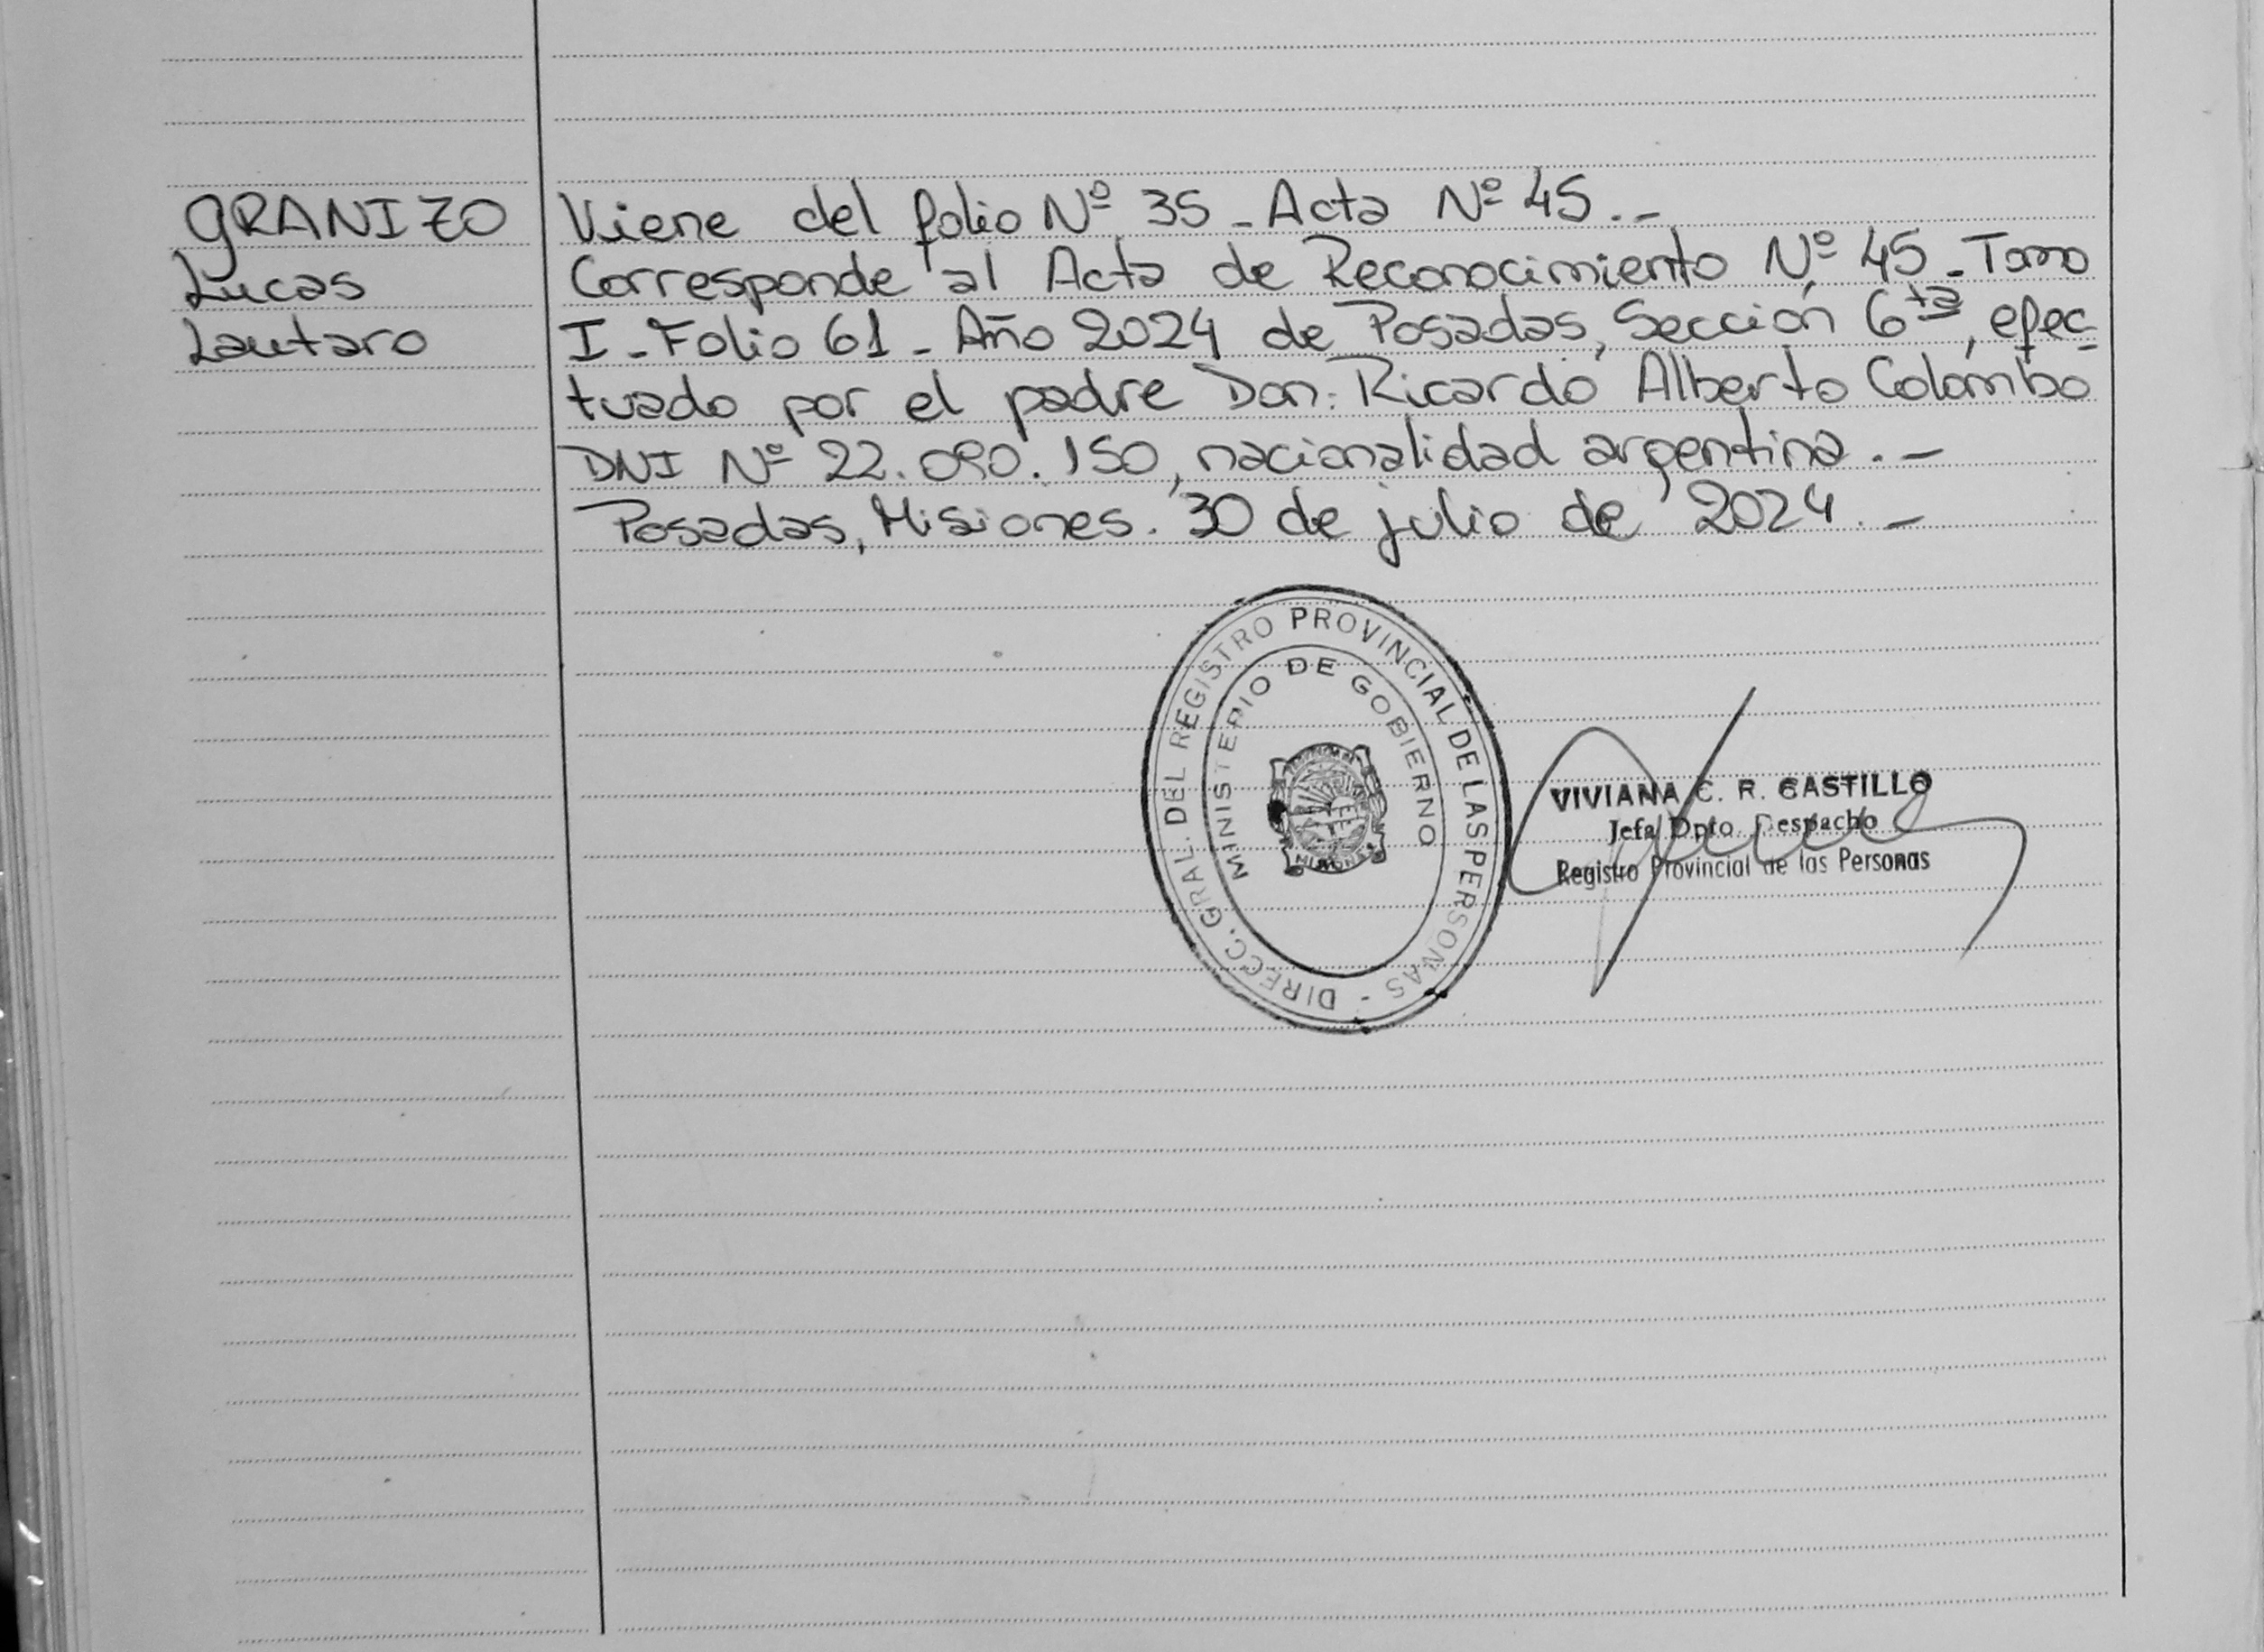 GRANIZO
Lucas
Lautaro
Viene del folio Nº 35 - Acta Nº 45.-
Corresponde al Acta de Reconocimiento Nº 45 - Tomo
I - Folio 61 - Año 2024 de Posadas, Sección 6ta, efec-
tuado por el padre Don: Ricardo Alberto Colombo
DNI Nº 22.090.150, nacionalidad argentina.-
Posadas, Misiones. 30 de julio de 2024.-
DIRECC. GRAL. DEL REGISTRO PROVINCIAL DE LAS PERSONAS -
MINISTERIO DE GOBIERNO
MISIONES
VIVIANA C. R. CASTILLO
Jefa Dpto. Despacho
Registro Provincial de las Personas